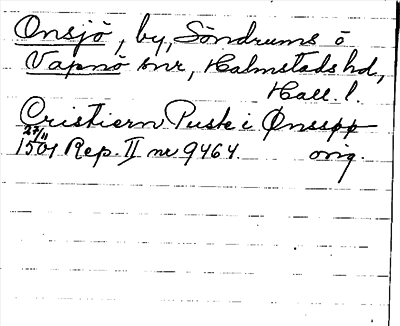 Onsjö, by, Söndrums o
Vapnö snr, Halmstads hd,
Hall. l.
Cristiern Puske i Ønsspp
27/11
1501 Rep. II nr 9464. orig.